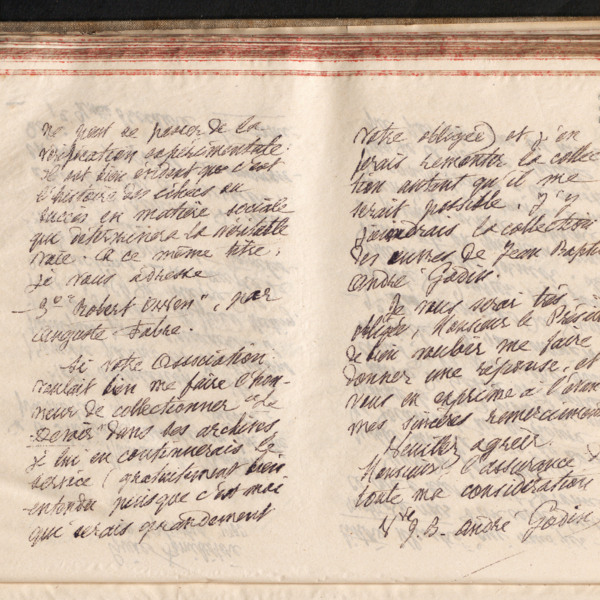 ne peut se passer de la
vérification expérimentale.
Il est bien évident que c'est
l'histoire des échecs ou
succès en matière sociale
qui déterminera la véritable
voie. A ce même titre,
je vous adresse
— 3° "Robert Owen", par
Auguste Fabre.
Si votre Association
voulait bien me faire l'hon-
neur de collectionner "Le
Devoir" dans ses archives,
je lui en continuerais le
service (gratuitement bien
entendu puisque c'est moi
qui serais grandement
votre obligée) et j'en
ferais remonter la collec
tion autant qu'il me
serait possible. J'y
joindrais la collection
des œuvres de Jean Bapti
André Godin.
Je vous serai très
obligée, Monsieur le Présid
de bien vouloir me faire
donner une réponse, et
vous en exprime à l'avan
mes sincères remerciemen
Veuillez agréer,
Monsieur, l'assurance
toute ma considération
Vve J. B. André Godin